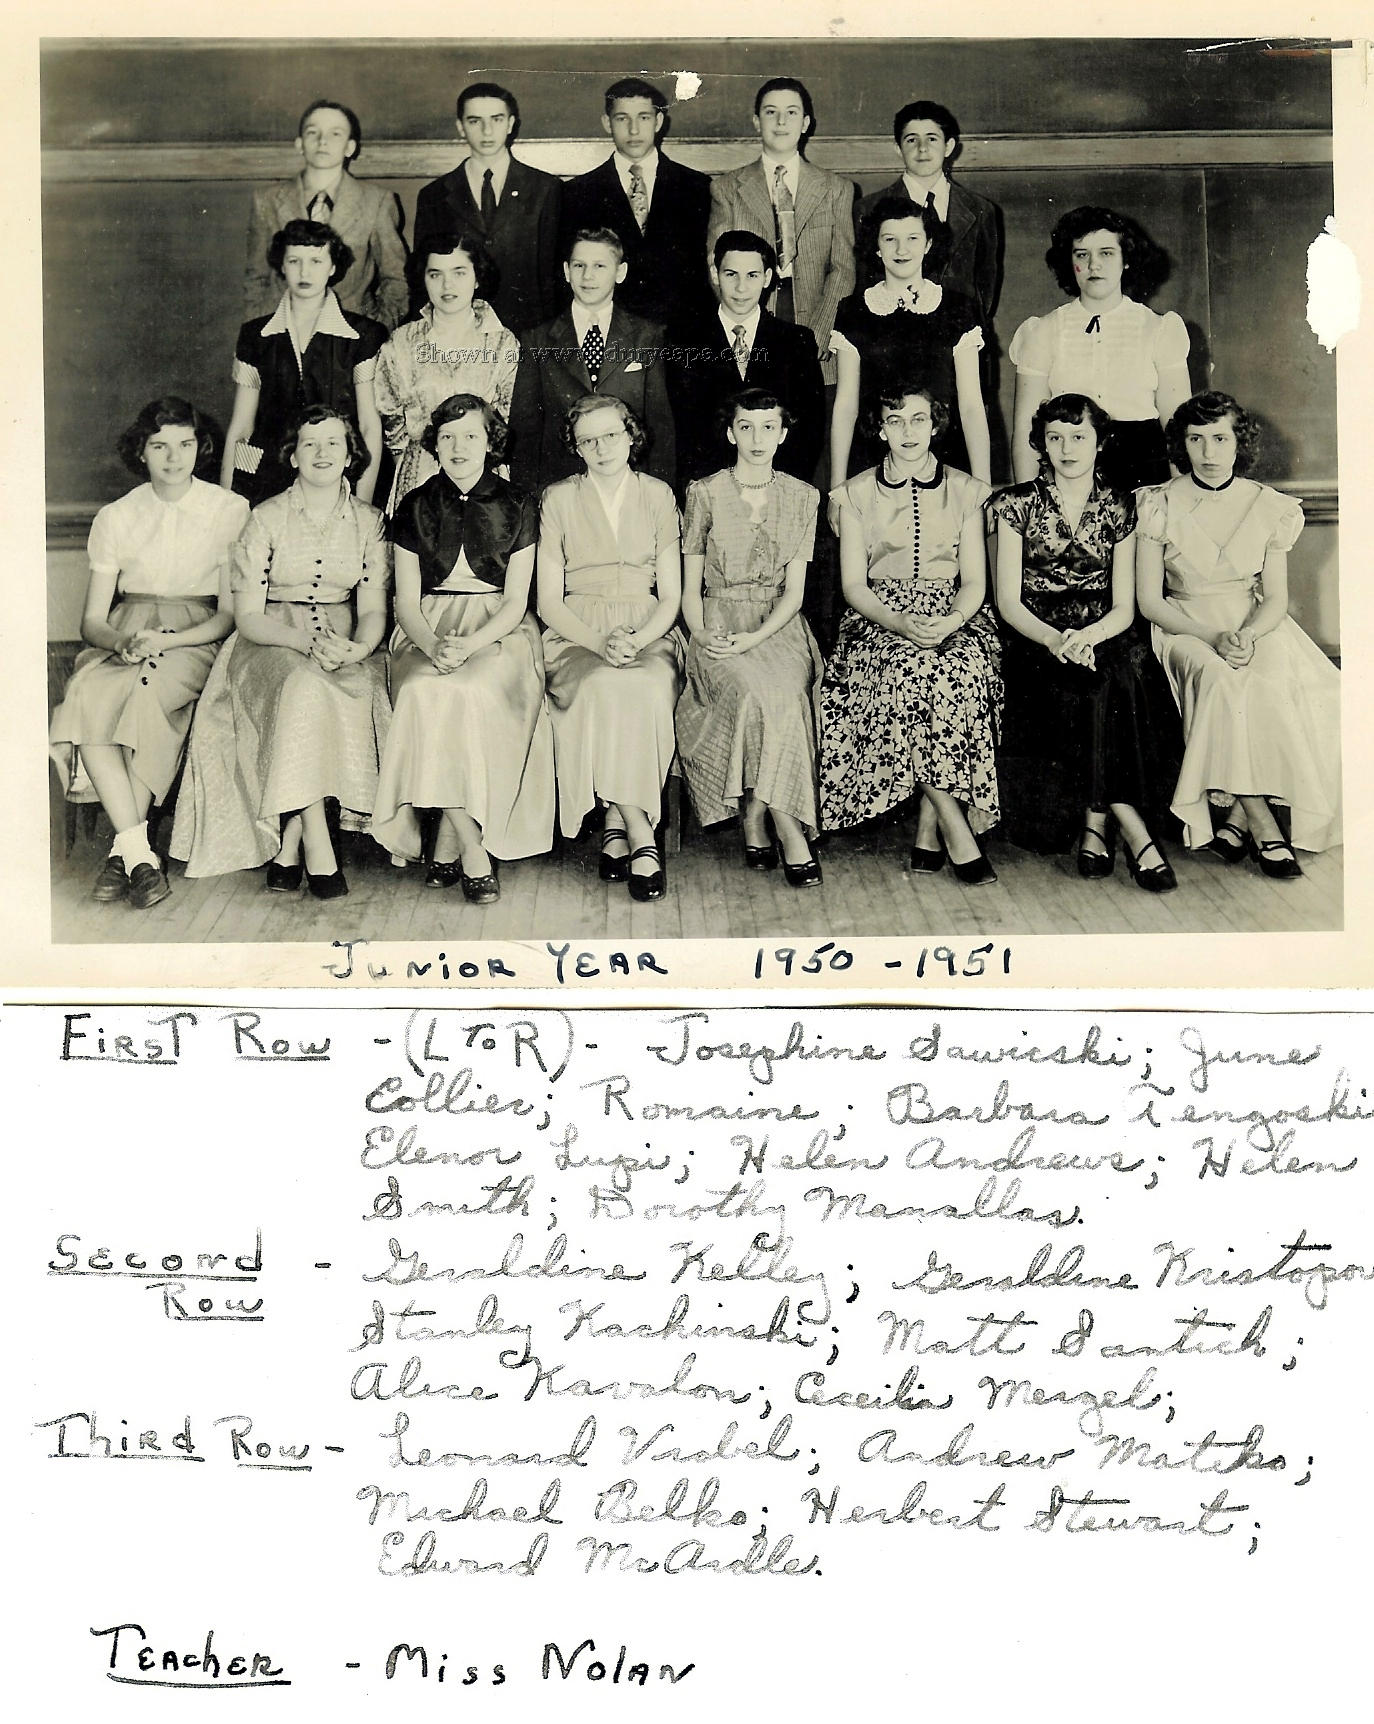 Shown at www.duryeapa.com
JUNIOR YEAR 1950-1951
First Row - (L To R) - Josephine Sawicski; June
Collier; Romaine; Barbara Tengoski
Elenor Lupi; Helen Andrews; Helen
Smith; Dorothy Manallas.
Second - Geraldine Kelley; Geraldine Kristopov
Row
Stanley Kachinski; Matt Santich;
Alice Kavalon; Cecilia Menzel;
Third Row - Leonard Vrabel; Andrew Matisko;
Michael Belko; Herbert Stewart;
Edward McArdle.
Teacher - Miss Nolan